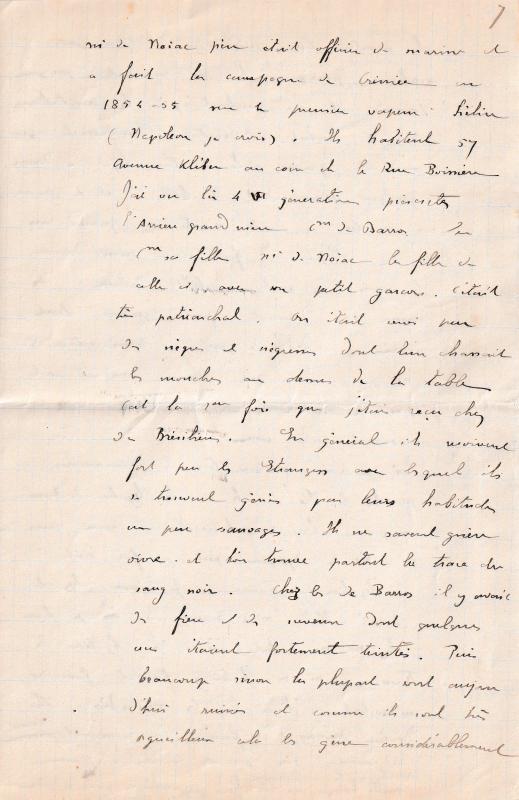 7
de Noiac père était officier de marine et
a fait la campagne de Crimée en
1854-55 sur le premier vapeur
(Napoléon je crois). Ils habitent 57
Avenue Kléber au coin de la Rue Boissière
J'ai vu là 4 générations présentes
l'Arrière grand mère de Barros
sa fille de Noiac la fille de
celle ci avec un petit garçon. C'était
très patriarchal. On était servi par
des nègres et négresses dont l'un chassait
les mouches au dessus de la table
C'est la 1ère fois que j'étais reçu chez
des Brésiliens. En général ils reçoivent
fort peu les Etrangers avec lesquels ils
se trouvent gênés par leurs habitudes
un peu sauvages. Ils ne savent guère
vivre. et l'on trouve partout la trace du
sang noir. Chez les de Barros il y avait
des frères et des neveux dont quelques
uns étaient fortement teintés. Puis
beaucoup sinon la plupart sont aujour
d'hui ruinés et comme ils sont très
orgueilleux cela les gêne considérablement